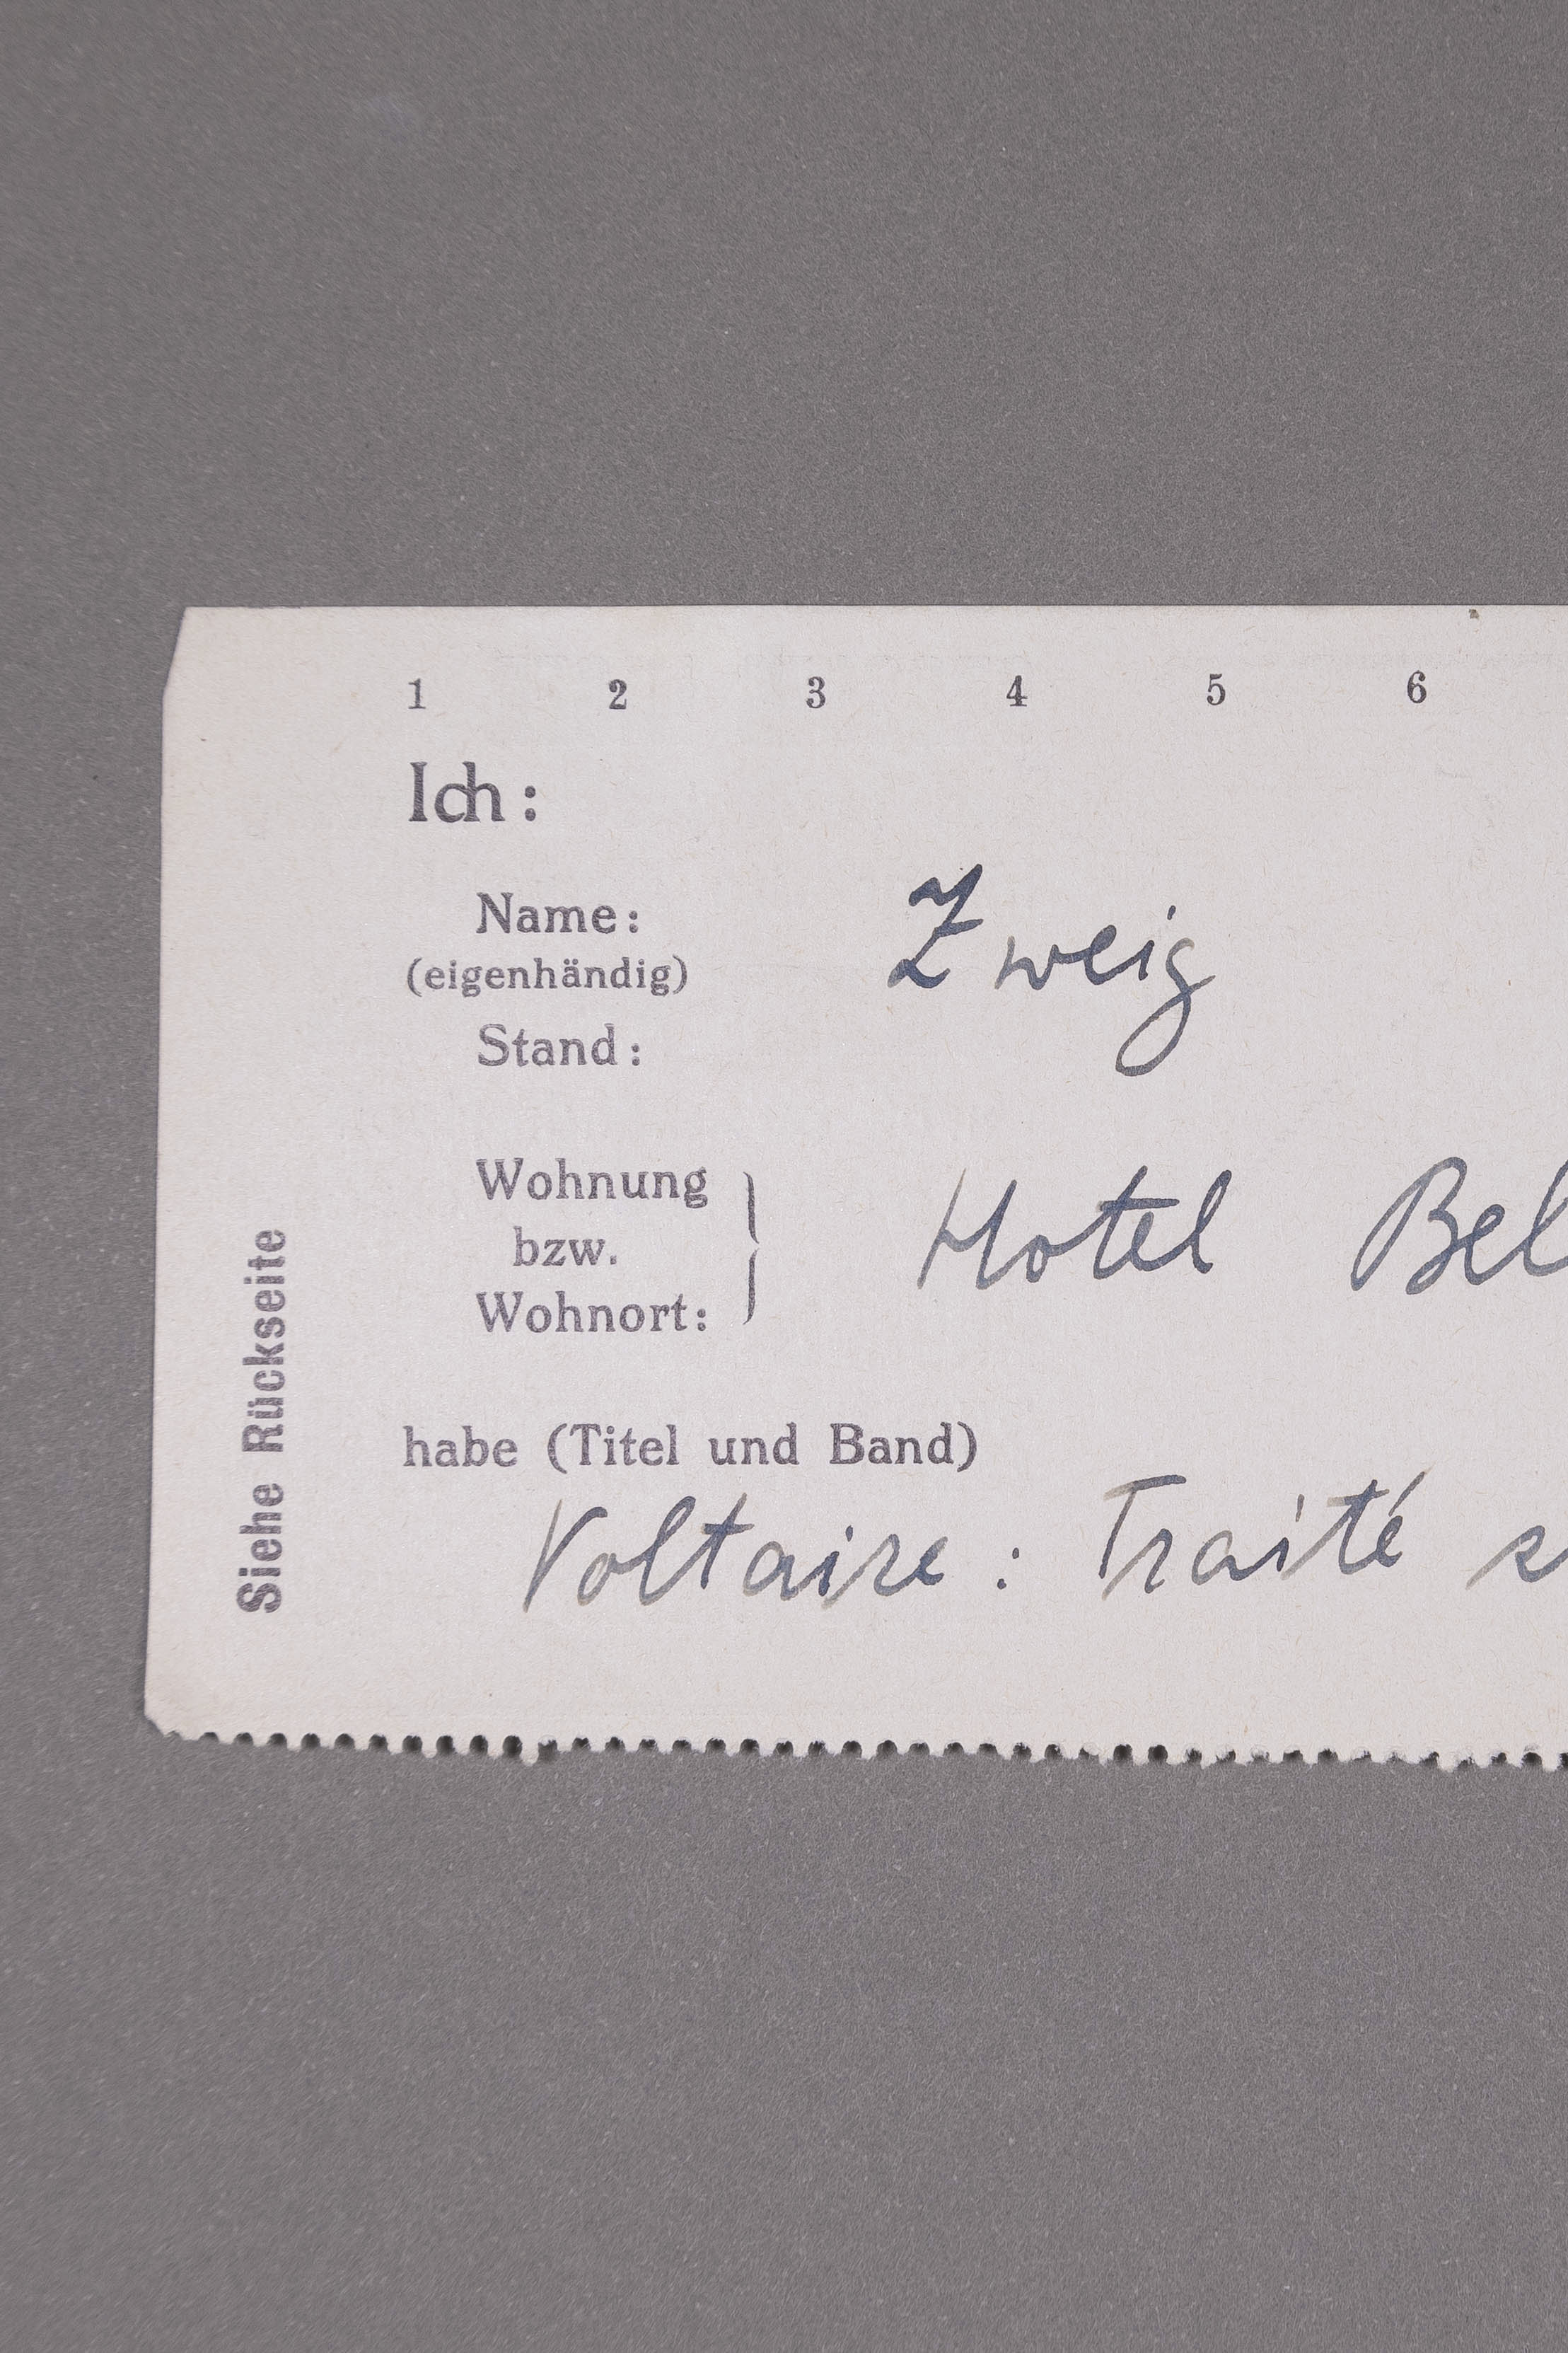 1 2 3 4 5 6
Ich:
Name: Zweig
(eigenhändig)
Stand:
Wohnung
bzw.
Wohnort: } Hotel Bel
habe (Titel und Band)
Voltaire: Traité s
Siehe Rückseite